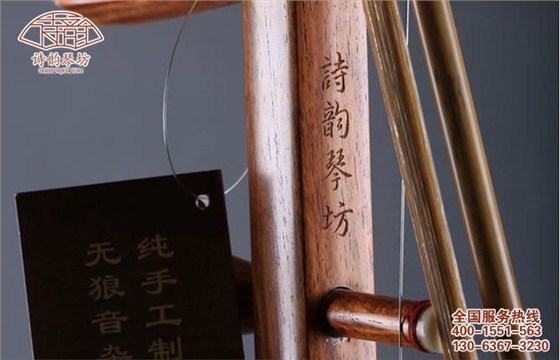 诗韵琴坊
詩韵琴坊
纯手工制
无狼音杂
全国服务热线
400-1551-563
130-6367-3230